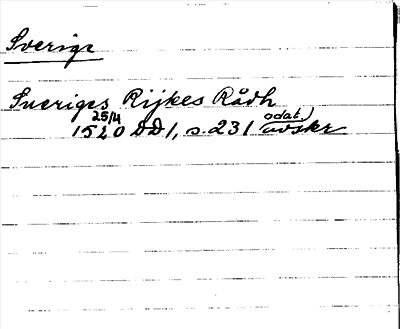 Sverige
Sueriges Rijkes Rådh
25/4 odat.)
1520 DD1, s. 231 avskr